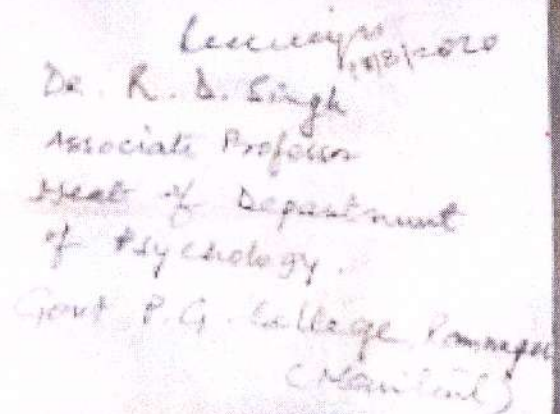 18/8/2020
Dr. R. D. Singh
Associate Professor
Head of Department
of Psychology.
Govt P. G. College Ramnagar
(Nainital)